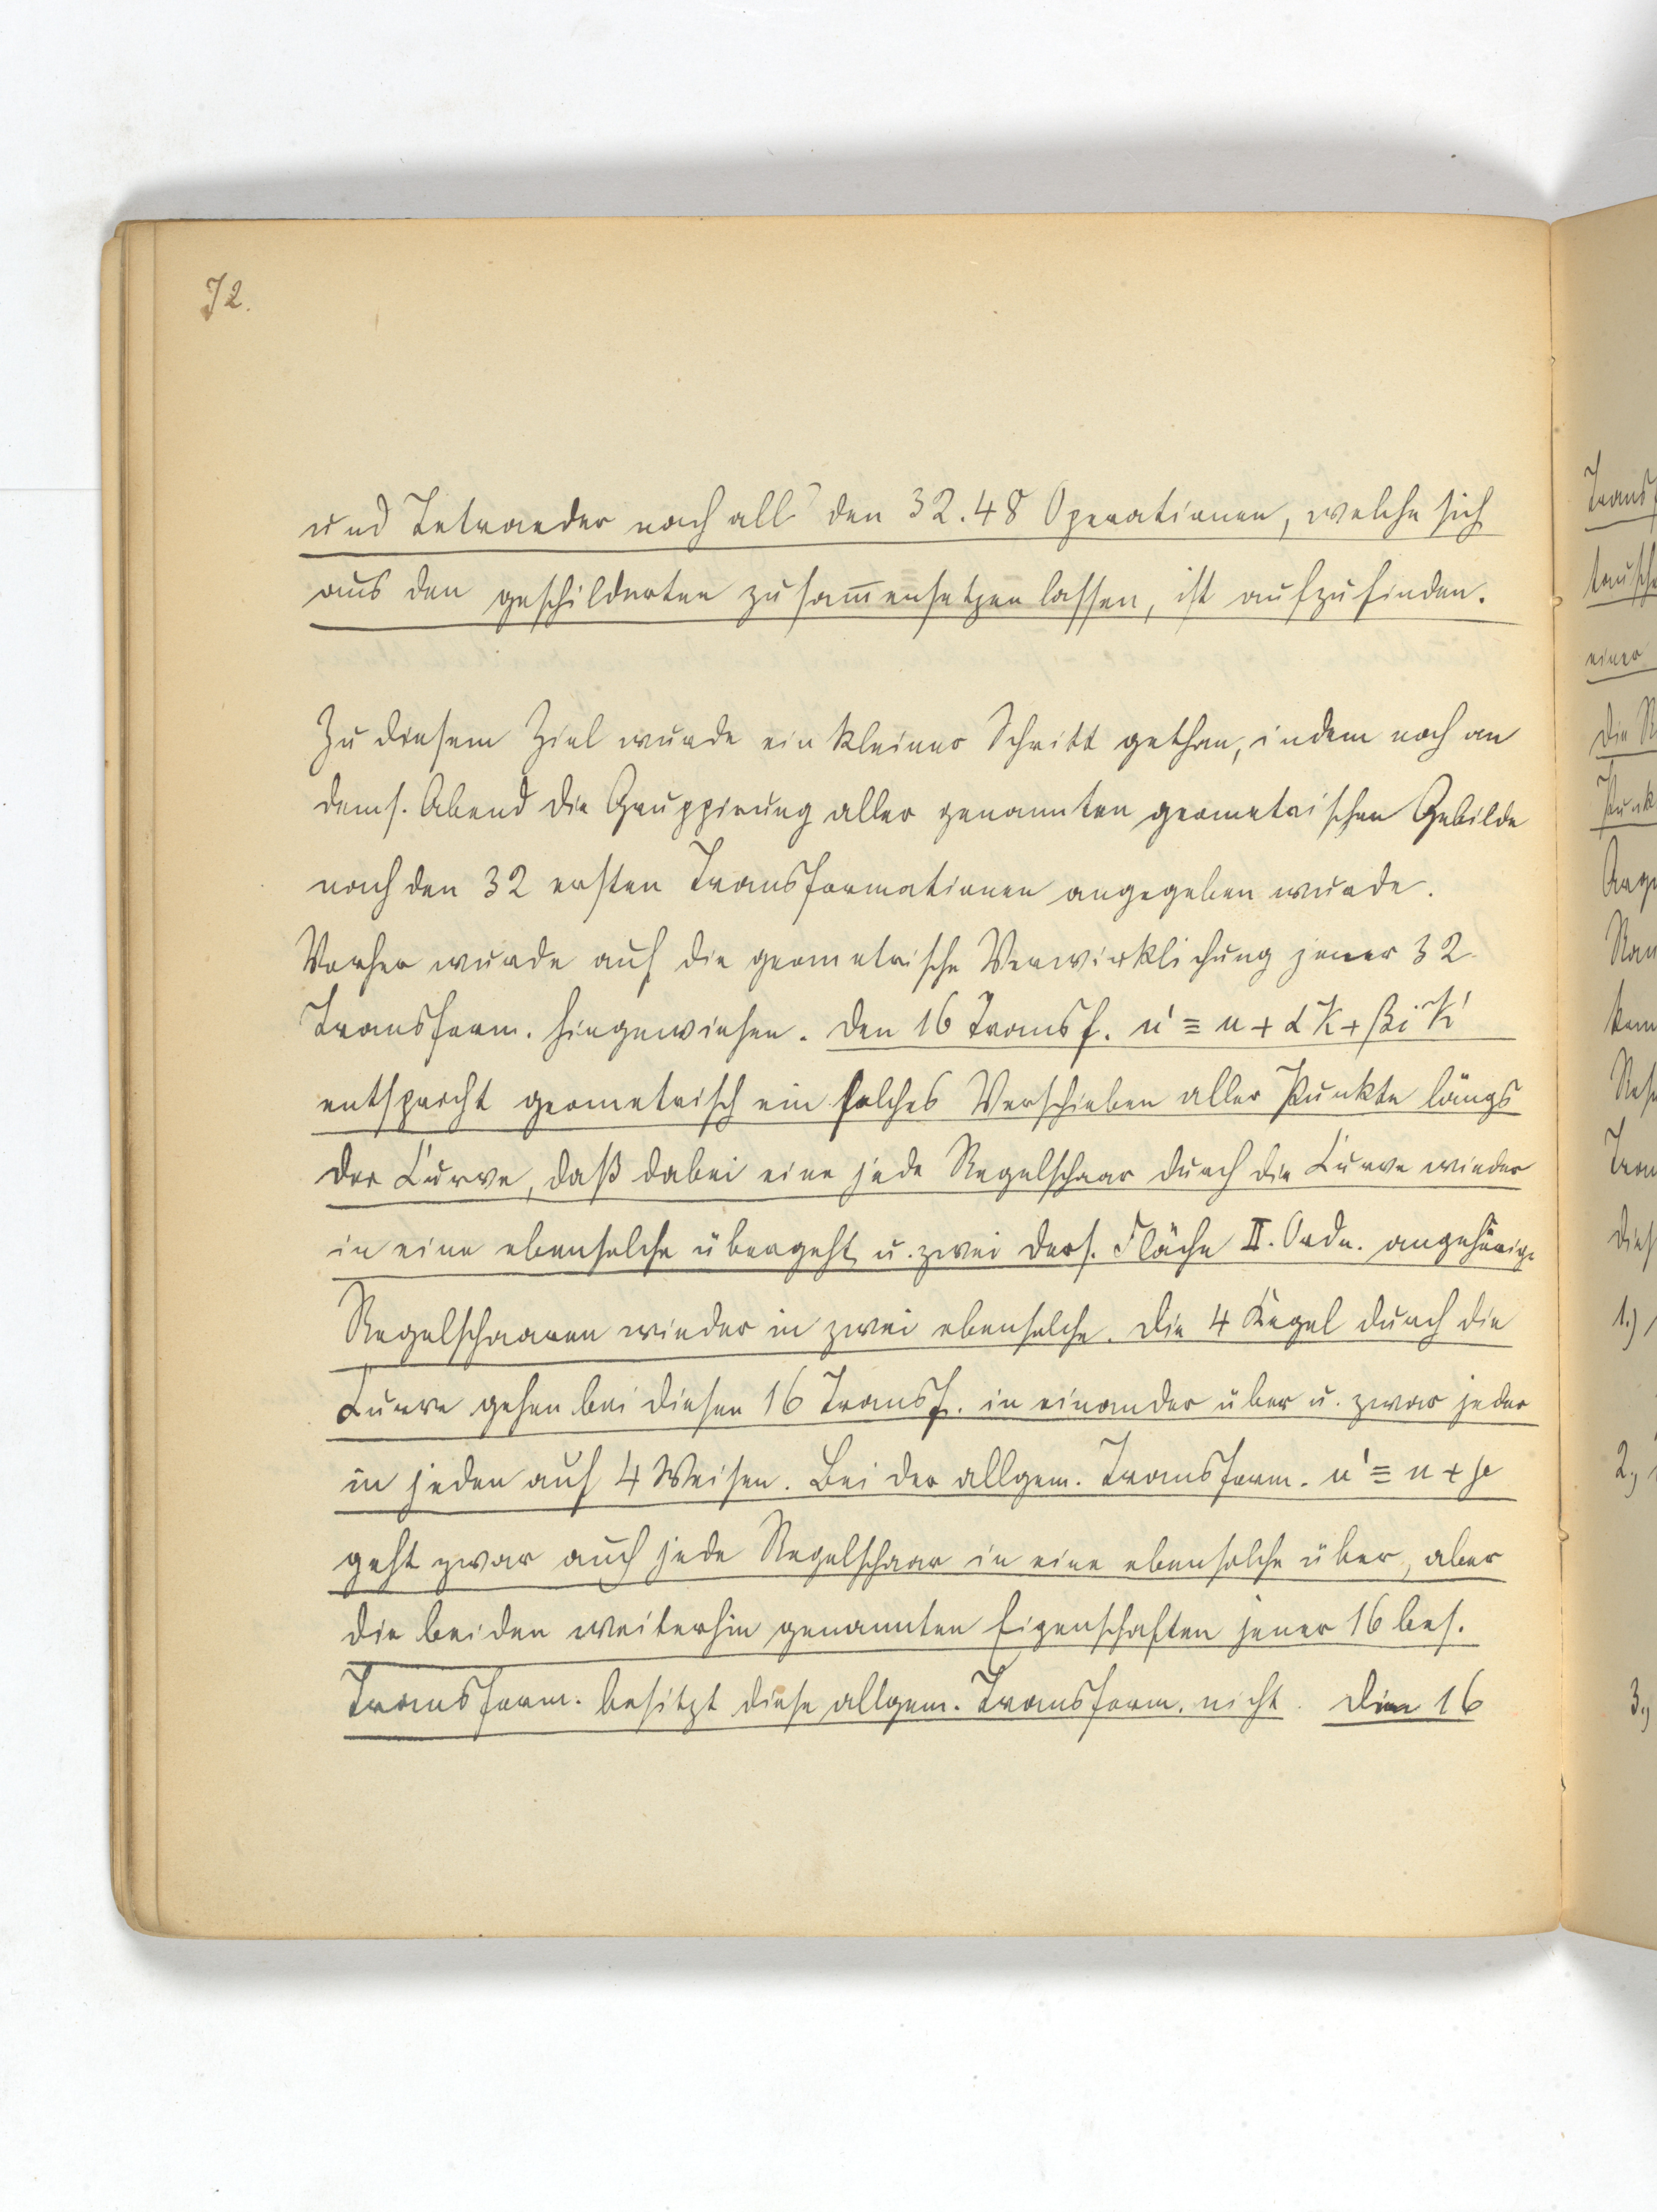 72.
und Tetraeder nach all' den 32.48 Operationen, welche sich
aus den geschilderten zusam̅ensetzen lassen, ist aufzufinden.
Zu diesem Ziel wurde ein kleiner Schritt gethan, indem noch an
dems. Abend die Gruppirung aller genannten geometrischen Gebilde
nach den 32 ersten Transformationen angegeben wurde.
Vorher wurde auf die geometrische Verwirklichung jener 32
Transform. hingewiesen. Den 16 Transf. u' ≡ u + αK + βiK'
entspricht geometrisch ein solches Verschieben aller Punkte längs
der Curve, daß dabei eine jede Regelschaar durch die Curve wieder
in eine ebensolche übergeht u. zwei ders. Fläche II. Ordn. angehörige
Regelschaaren wieder in zwei ebensolche. Die 4 Kegel durch die
Curve gehen bei diesen 16 Transf. in einander über u. zwar jeder
in jeden auf 4 Weisen. Bei der allgem. Transform. u' ≡ u + μ
geht zwar auch jede Regelschaar in eine ebensolche über, aber
die beiden weiterhin genannten Eigenschaften jener 16 bes.
Transform. besitzt diese allgem. Transform. nicht. Den 16
Trans
tausch
einer
die R
Punk
1.)
2.)
3.)